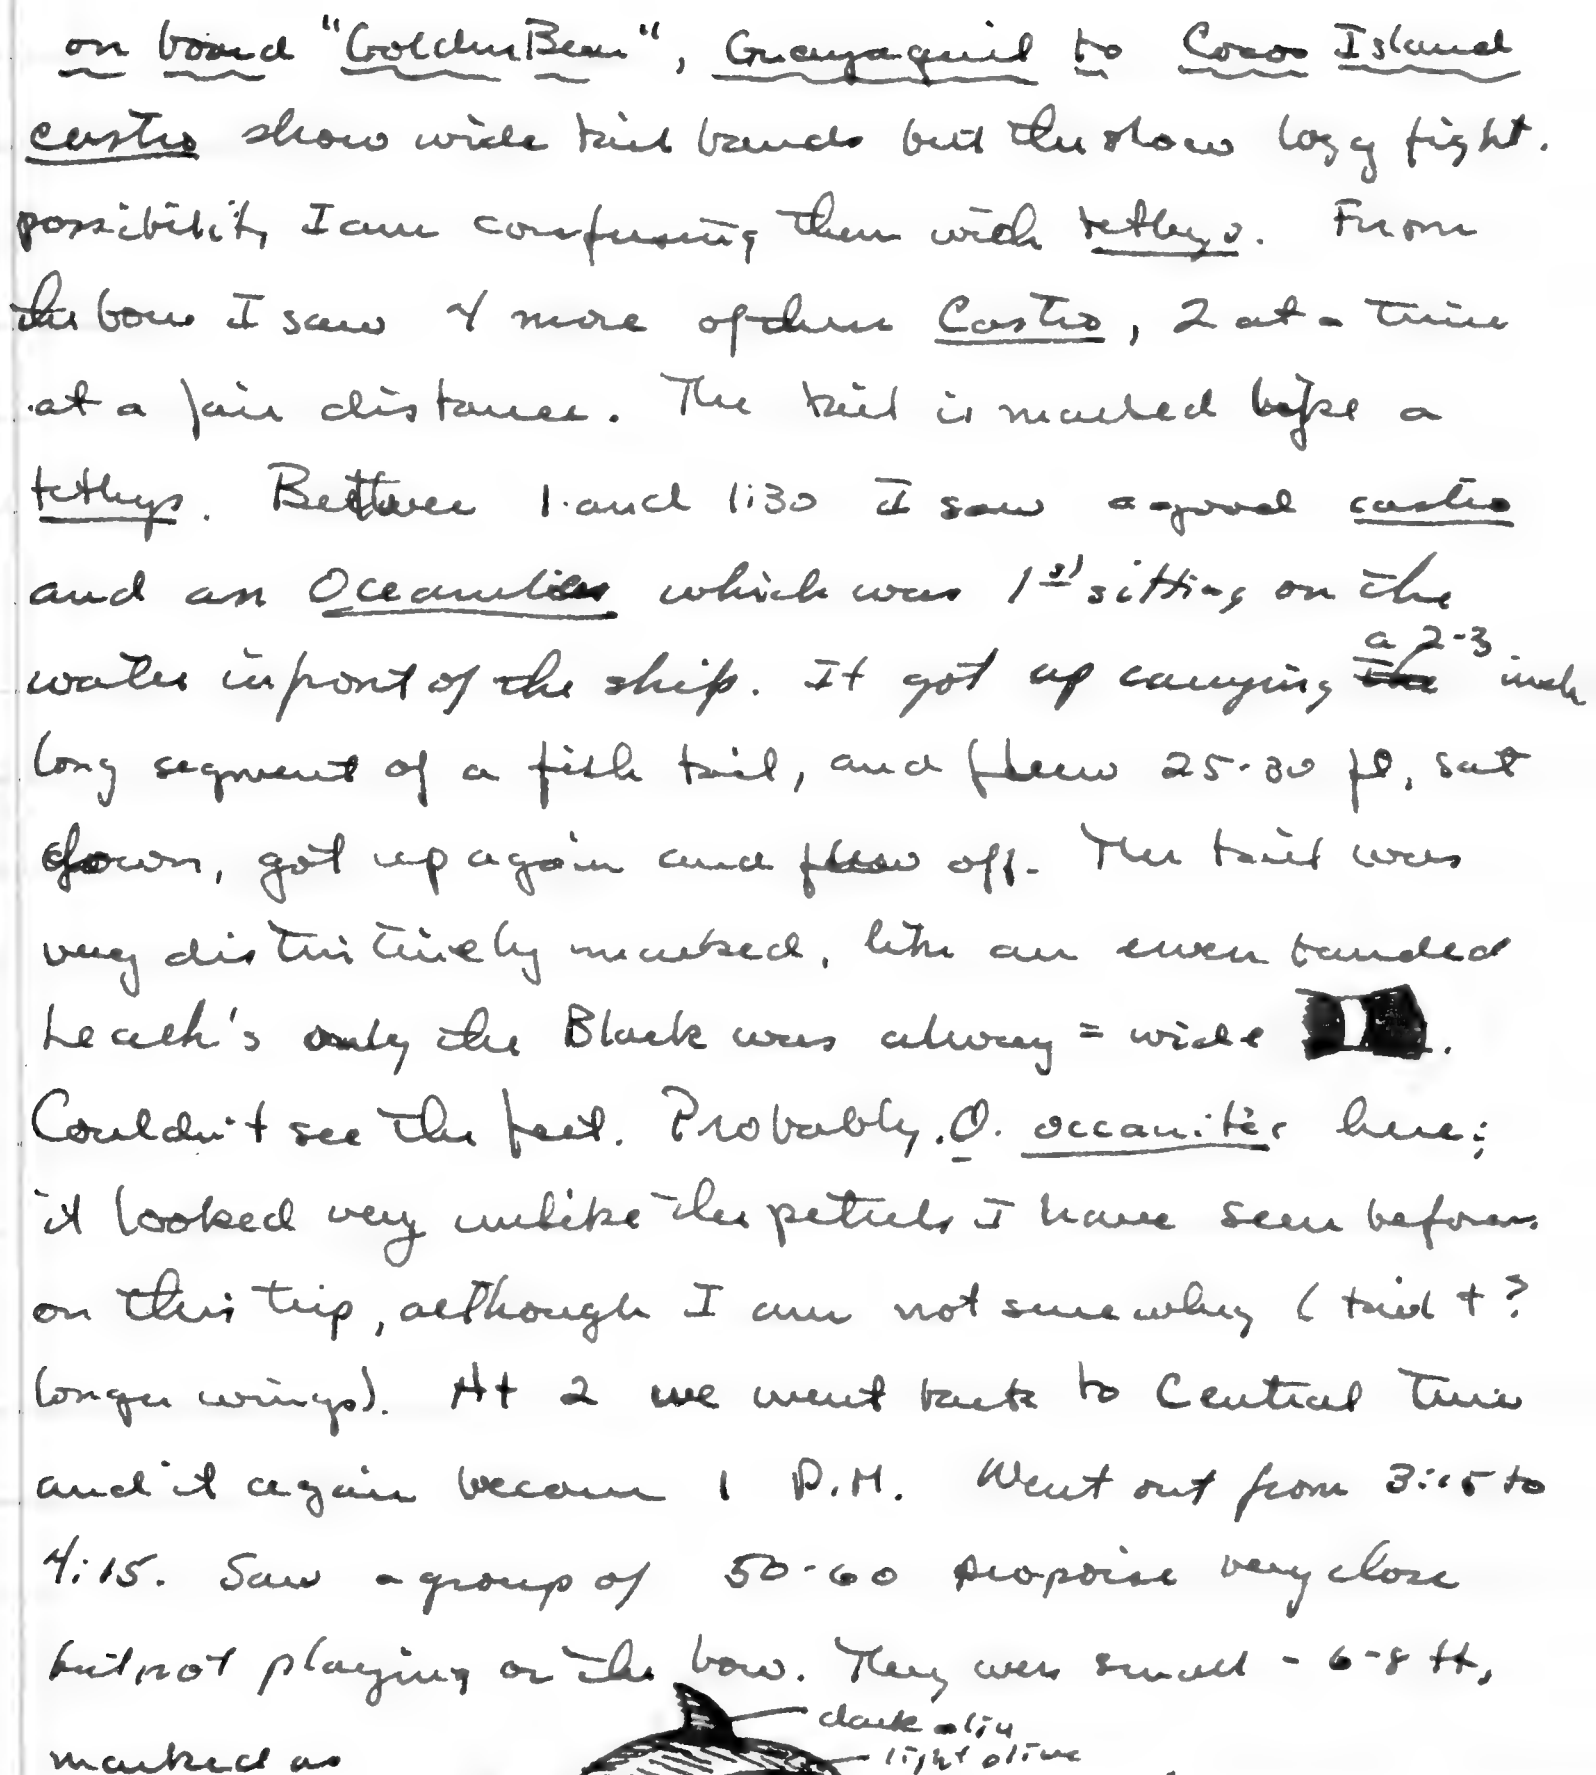 on board "Golden Bear", Guayaquil to Cocos Island
castro show wide tail bands but the slow logy fight.
possibility I am confusing them with tethys. From
the bow I saw 4 more of them Castro, 2 at a time
at a fair distance. The tail is marked like a
tethys. Between 1 and 1:30 I saw a good castro
and an Oceanites which was 1st sitting on the
water in front of the ship. It got up carrying a 2-3 inch
long segment of a fish tail, and flew 25-30 ft, sat
down, got up again and flew off. The tail was
very distinctively marked, like an even banded
Leach's only the Black was alway = wide
Couldn't see the feet. Probably O. oceanites here;
it looked very unlike the petrels I have seen before
on this trip, although I am not sure why (tail + ?
longer wings). At 2 we went back to Central Time
and it again became 1 P.M. Went out from 3:15 to
4:15. Saw a group of 50-60 porpoise very close
but not playing on the bow. They were small - 6-8 ft,
dark oliv
marked as
light olive